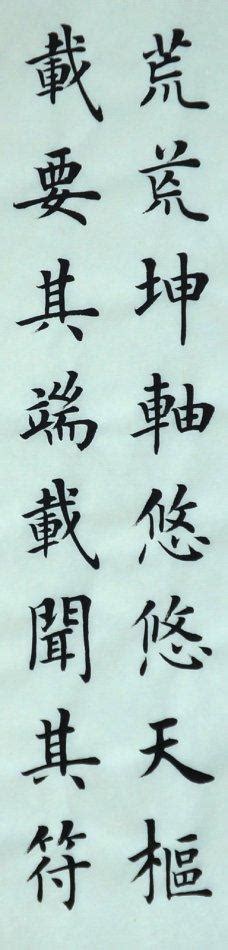 荒荒坤軸悠悠天樞
載要其端載聞其符